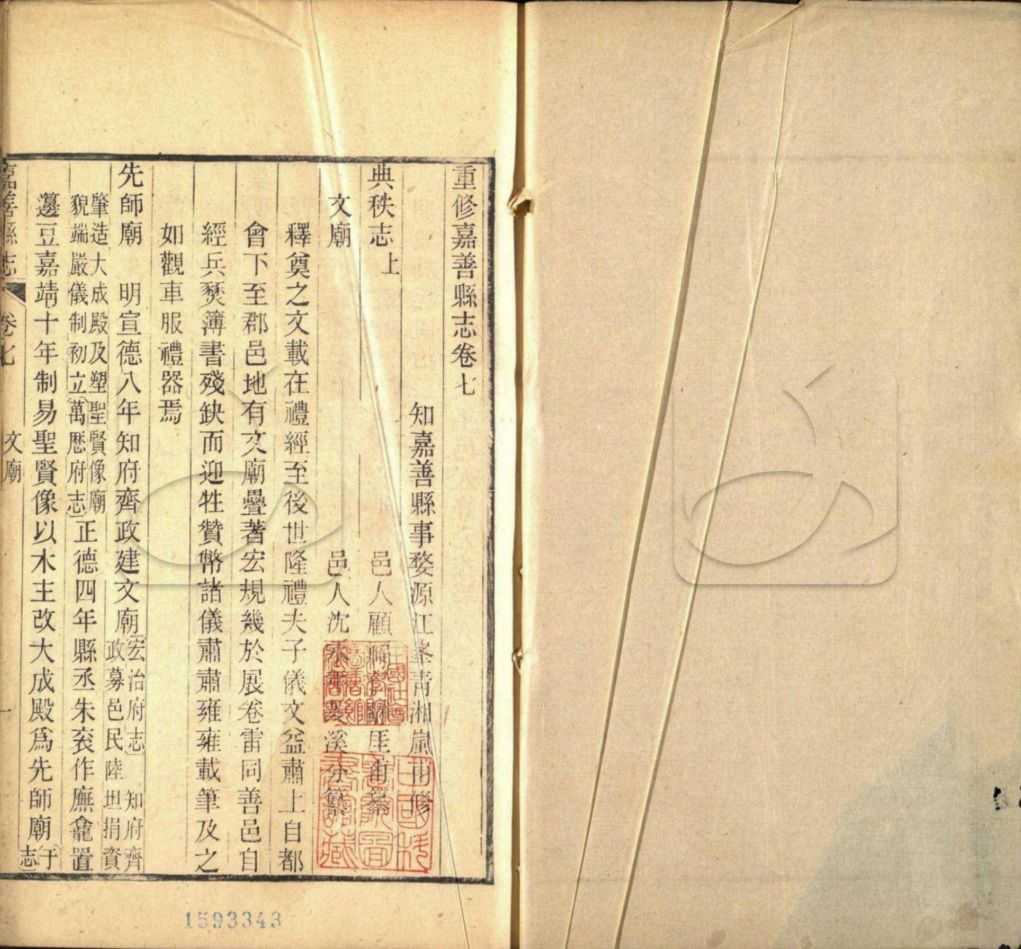 重修嘉善縣志卷七
知嘉善縣事婺源江峯青湘嵐甫修
典秩志上
邑人顧福
文廟
邑人沈
釋奠之文載在禮經至後世隆禮夫子儀文益肅上自都
會下至郡邑地有文廟疊著宏規幾於展卷雷同善邑自
經兵燹簿書殘缺而迎牲贊幣諸儀肅肅雍雍載筆及之
如觀車服禮器焉
先師廟 明宣德八年知府齊政建文廟宏治府志 知府齊
政募邑民陸坦捐資
肇造大成殿及塑聖賢像廟
貌端嚴儀制初立萬厯府志正德四年縣丞朱衮作廡龕置
籩豆嘉靖十年制易聖賢像以木主改大成殿爲先師廟于
志
嘉善縣志 卷七 文廟 一
1593343